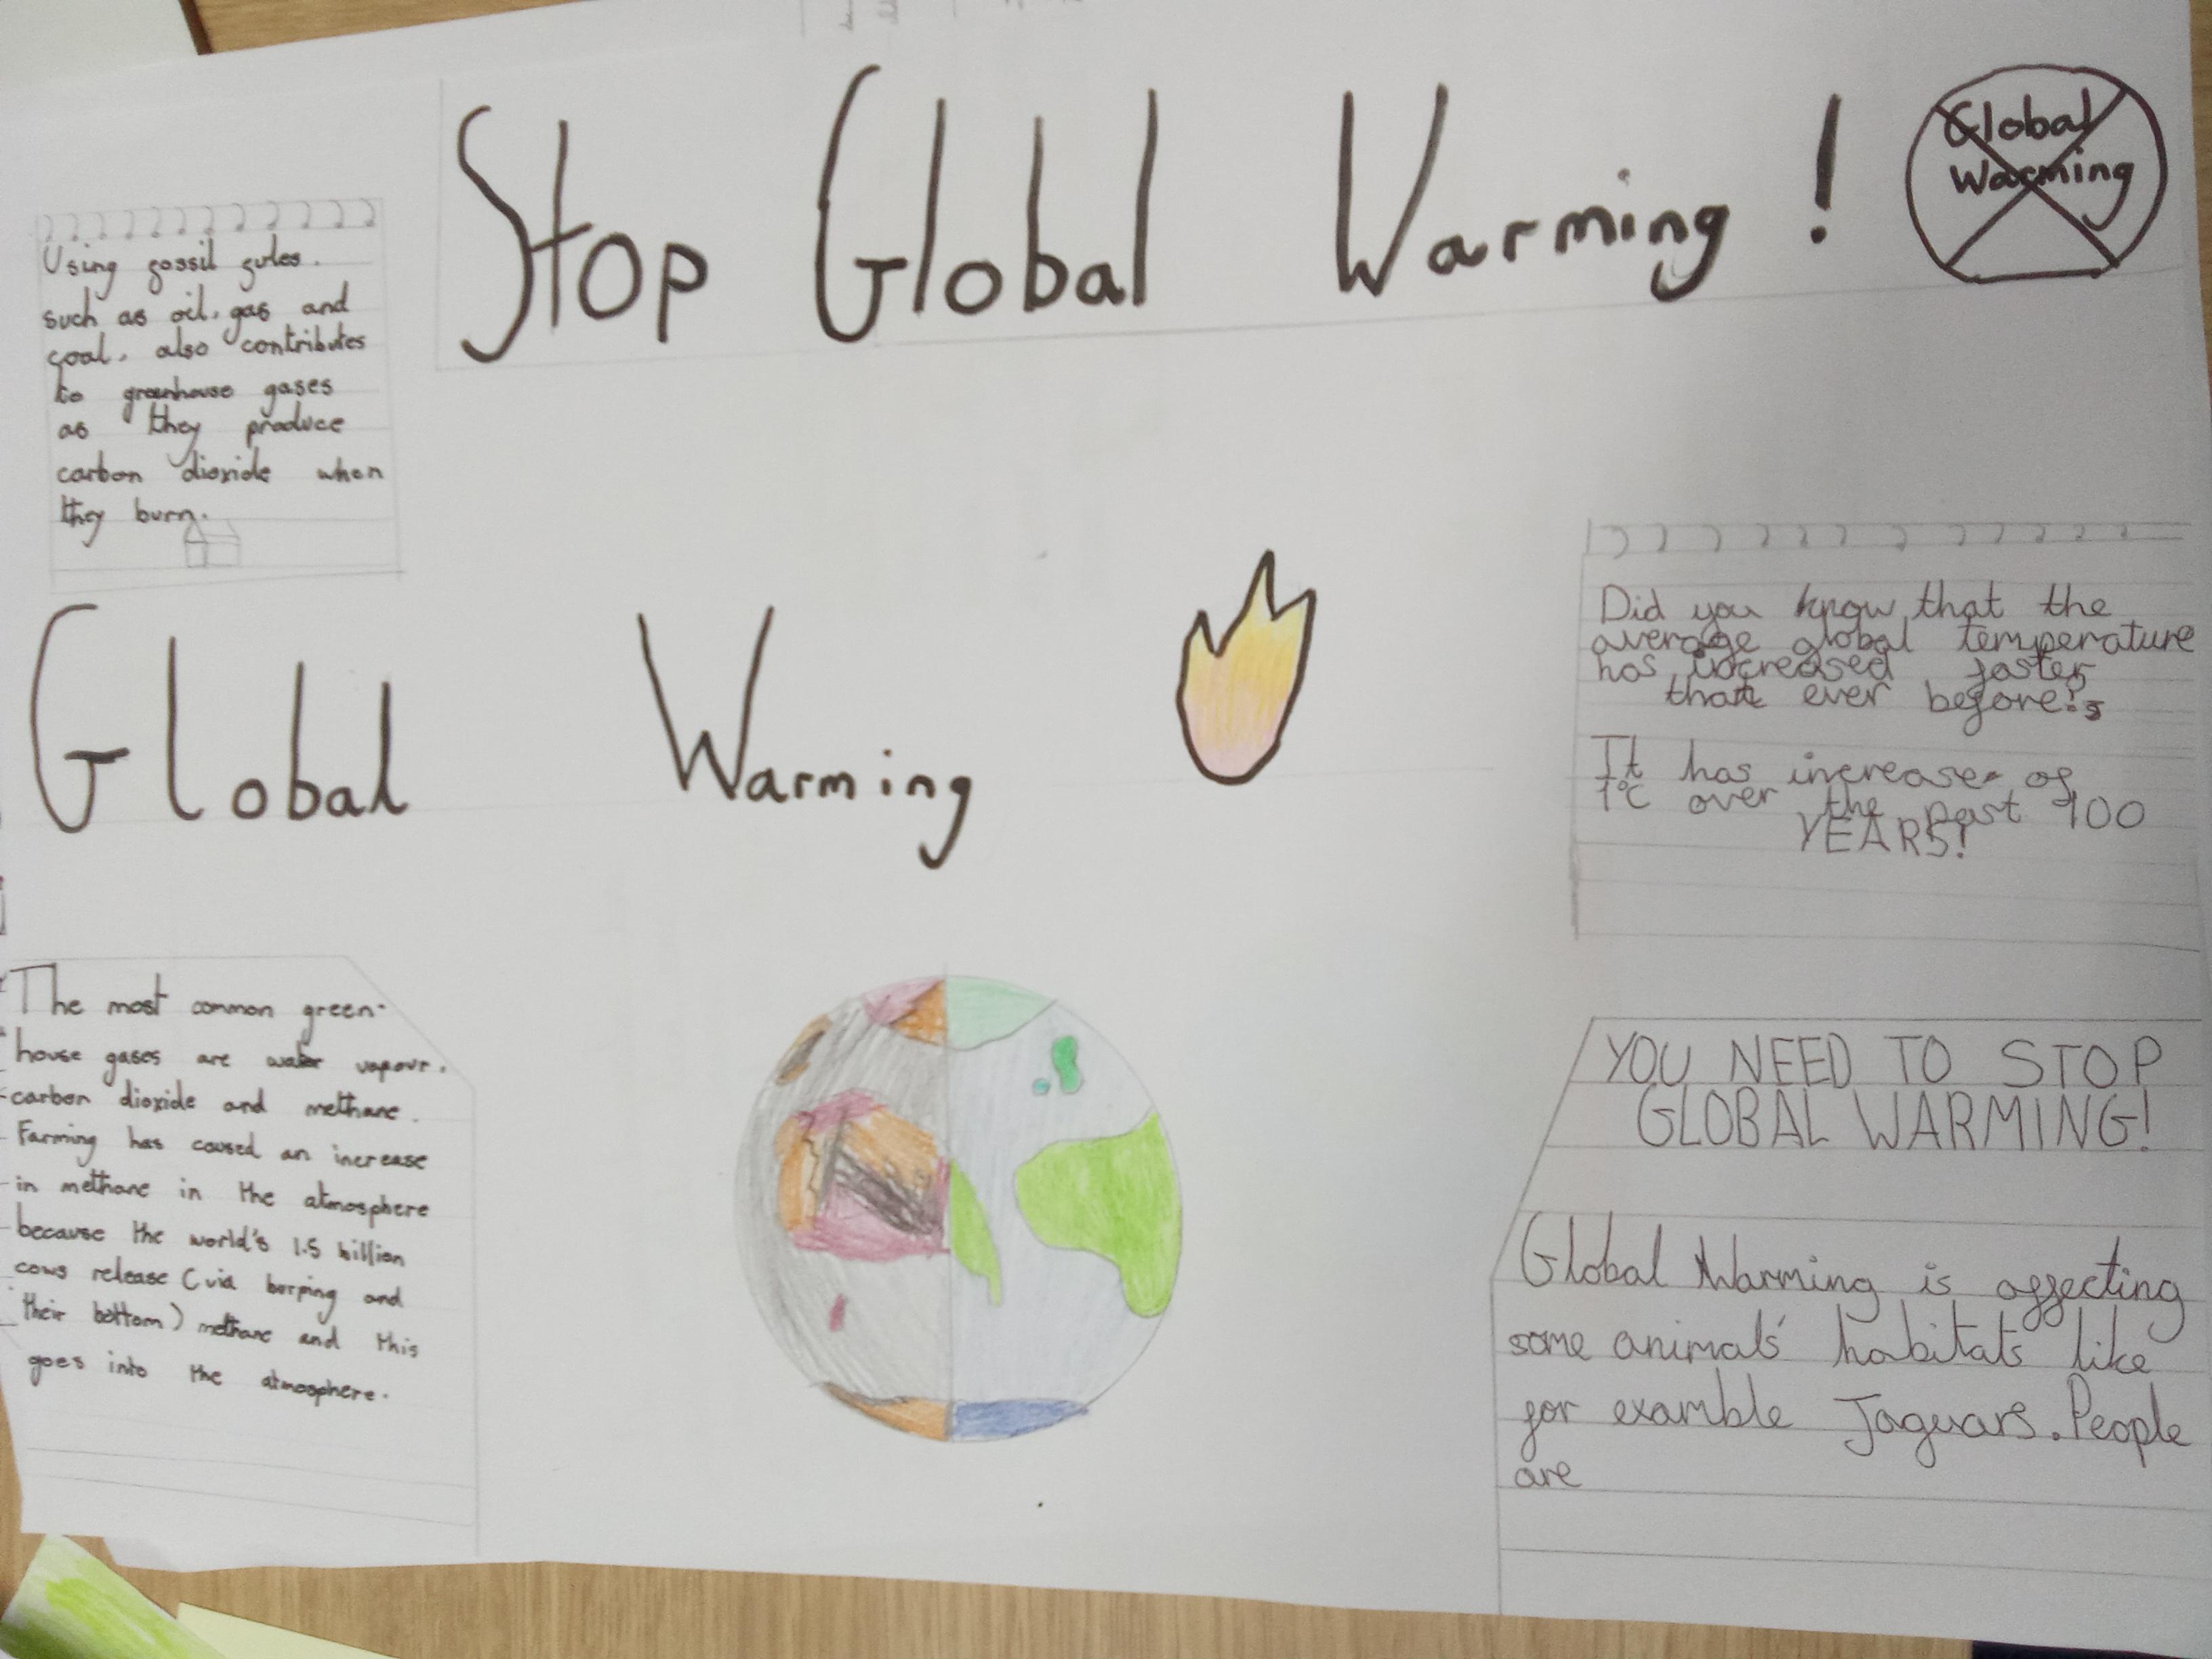 Stop Global Warming!
Global
Warming
Using fossil fules.
such as oil, gas and
coal, also contributes
to greenhouse gases
as they produce
carbon dioxide when
they burn.
Global Warming
Did you know that the
average global temperature
has increased faster
than ever before?
It has increase of
1°C over the past 100
YEARS!
The most common green-
house gases are water vapour,
carbon dioxide and methane.
Farming has caused an increase
in methane in the atmosphere
because the world's 1.5 billion
cows release (via borping and
their bottom) methane and this
goes into the atmosphere.
YOU NEED TO STOP
GLOBAL WARMING!
Global Warming is affecting
some animals' habitats like
for examble Jaguars. People
are